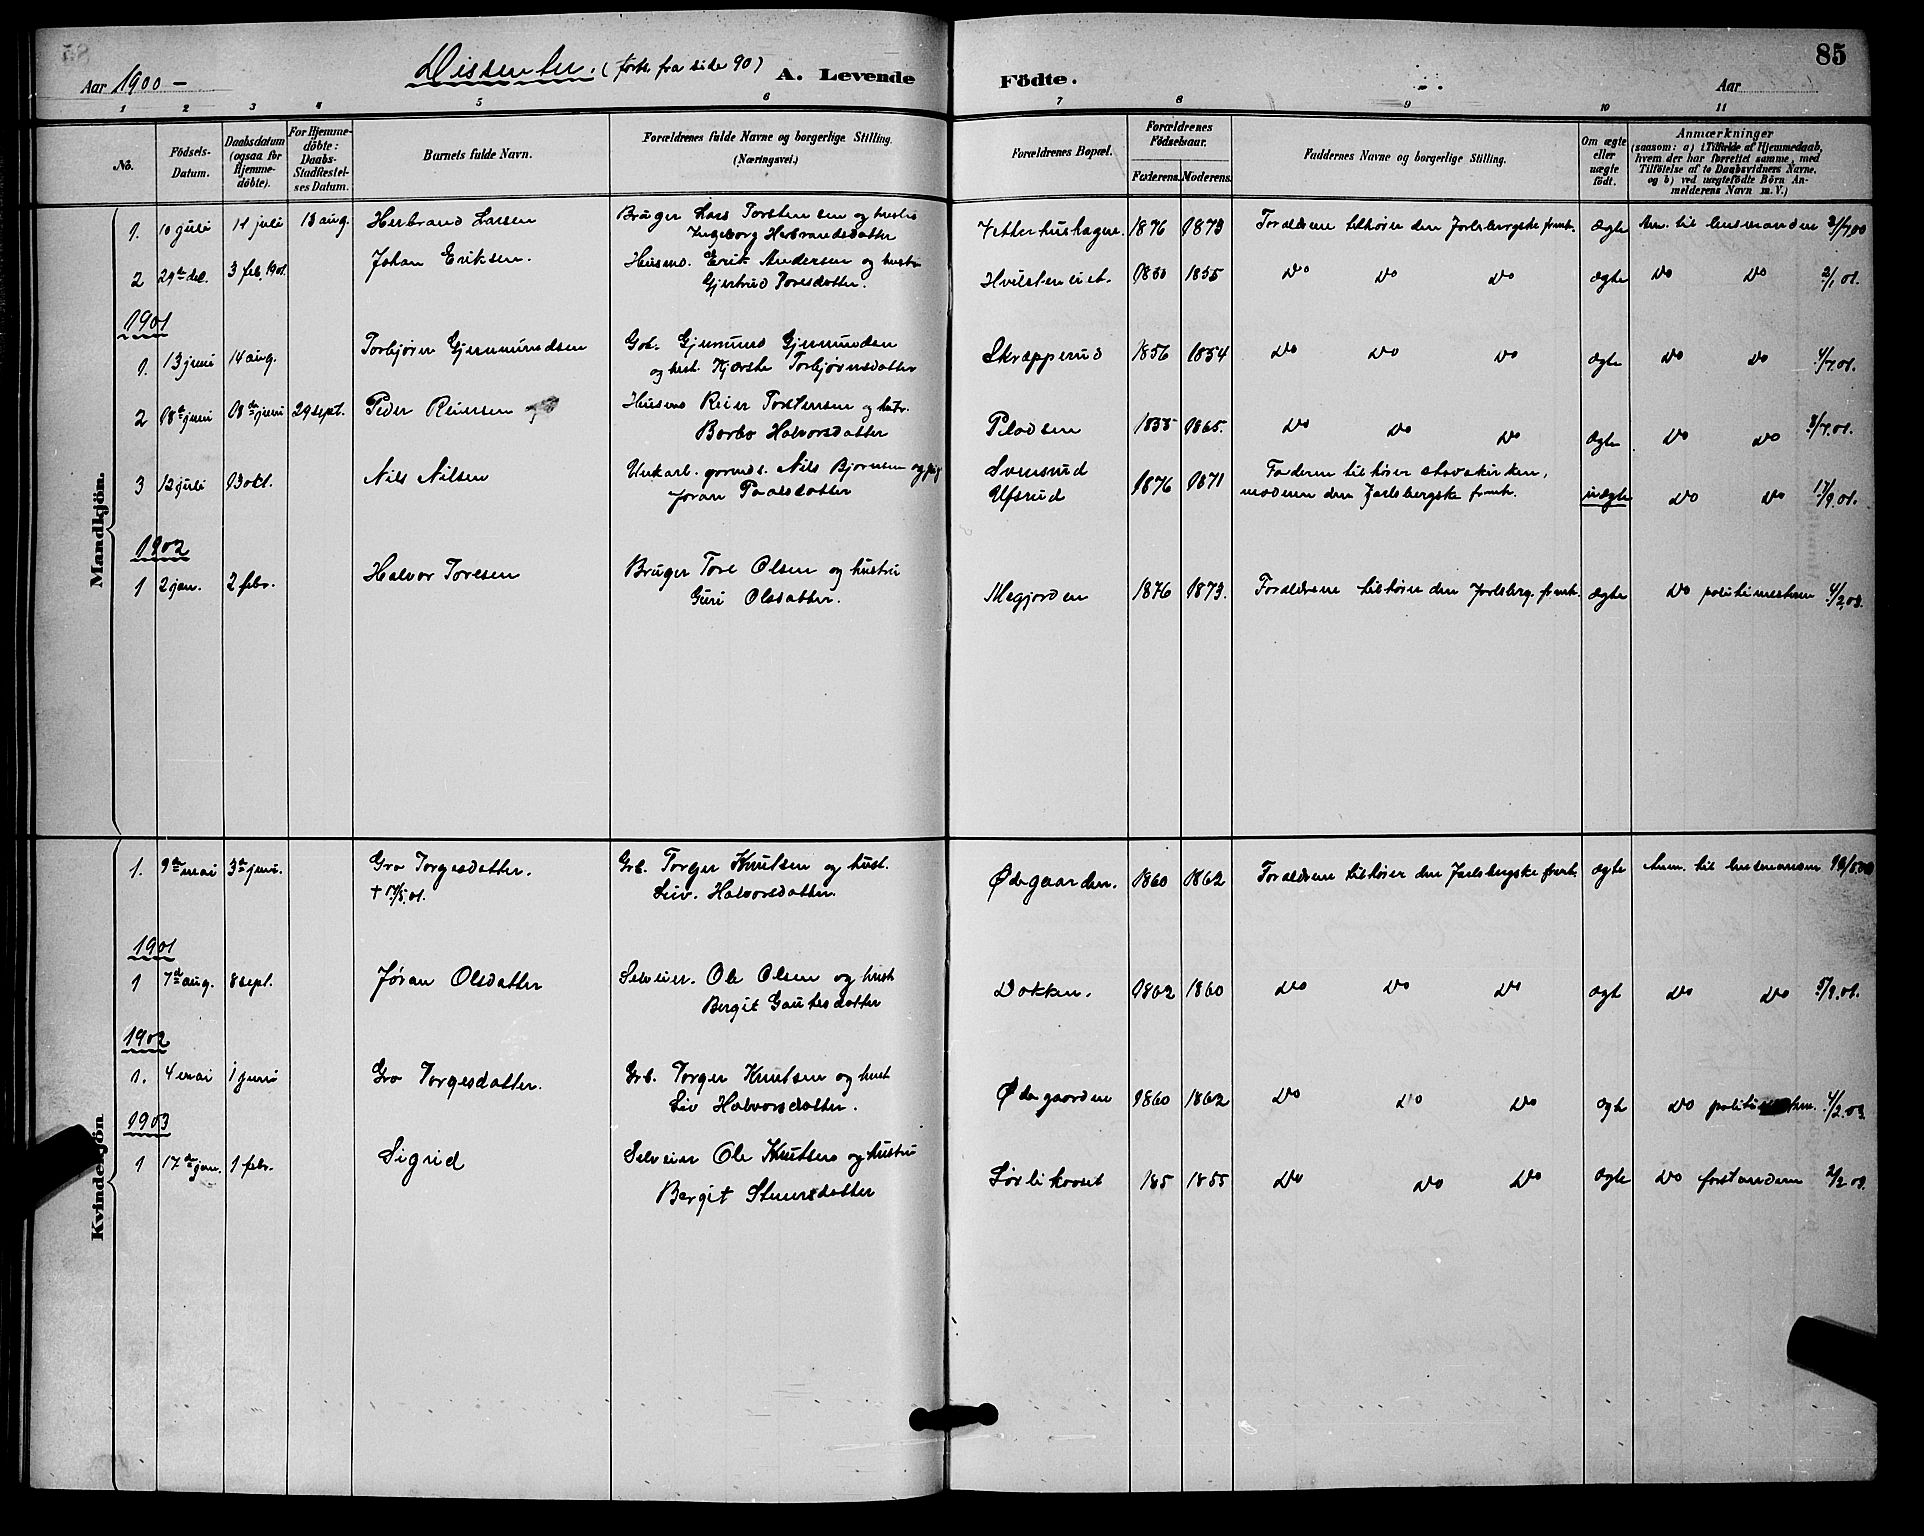 85
Aar 1900 –
Dissenter. (forts. fra side 90)
A. Levende Födte.
Aar
1 2 3 4 5 6 7 8 9 10 11
No.
Födsels-Datum.
Daabsdatum (ogsaa for Hjemme-döbte).
For Hjemme-döbte: Daabs-Stadfæstel-ses Datum.
Barnets fulde Navn.
Forældrenes fulde Navne og borgerlige Stilling. (Næringsvei.)
Forældrenes Bopæl.
Forældrenes Födselsaar.
Faderens. Moderens.
Faddernes Navne og borgerlige Stilling.
Om ægte eller uægte födt.
Anmærkninger (saasom: a) i Tilfælde af Hjemmedaab, hvem der har forrettet samme, med Tilföielse af to Daabsvidners Navne, og b) ved uægtefödte Börn An-melderens Navn m. V.)
Mandkjön.
1. 10 juli 14 juli 13 aug. Herbrand Larsen Bruger Lars Torstensen og hustru
Ingeborg Herbrandsdatter 1876 1873 Forældrene tilhører den Jarlsbergske frimh. ægte Anm. til lensmanden
2 29de dec. 3 feb. 1901 Johan Eriksen. Husmd. Erik Andersen og hustru
Gjertrud Toresdatter. 1850 1855 Do Do Do ægte Do Do 2/1 01.
1901
1. 13 juni 14 aug. Torbjørn Gjermundsen Gbr. Gjermund Gjermundsen
og hust. Kjersti Torbjørnsdatter Skrapperud 1856 1854 Do Do Do ægte Do Do
2 18de juni 18de juni 29 sept. Peder Reiersen Husmd Reier Torstensen og hustr.
Barbo Halvorsdatter Pladsen 1865. Do Do Do ægte Do Do
3 12 juli 13 okt. Nils Nilsen Ungkarl. Nils Bjørnsen og pige
Jøran Paalsdatter Svensrud
Ufsrud 1876 1871 Faderen tilhører statskirken,
moderen den Jarlsbergske frimh. uægte Do Do 17/9.01.
1902
1 2 jan. 2 febr. Halvor Toresen Bruger Tore Olsen og hustru
Guri Olsdatter. Megjorden 1876 1873. Forældrene tilhører den Jarlsberg. frimh. ægte Do politimesteren 4/2.03.
Kvindekjön
1. 9de mai 3de juni. Gro Torgesdatter. Gbr. Torger Knutsen og hust.
† Liv. Halvorsdatter. Ødegaarden. 1860 1862 Forældrene tilhører den Jarlsbergske frimh. ægte Anm. til lensmanden
1901
1 7de aug. 8 sept. Jøran Olsdatter Selveier. Ole Olsen og hust
Bergit Gautesdatter Dokken. 1862 1860 Do Do Do ægt Do Do 5/9.01.
1902
1. 4 mai 1 juni Gro Torgesdatter. Gbr. Torger Knutsen og hust
Liv Halvorsdatter. Ødegaarden 1860 1862 Do Do Do ægte Do 4/2.03
1903
1 17de jan. 1 febr. Sigrid Selveier Ole Knutsen og hustru
Bergit Steinarsdatter 185 1855 Do Do Do ægte Do forstanderen 2/2.03.